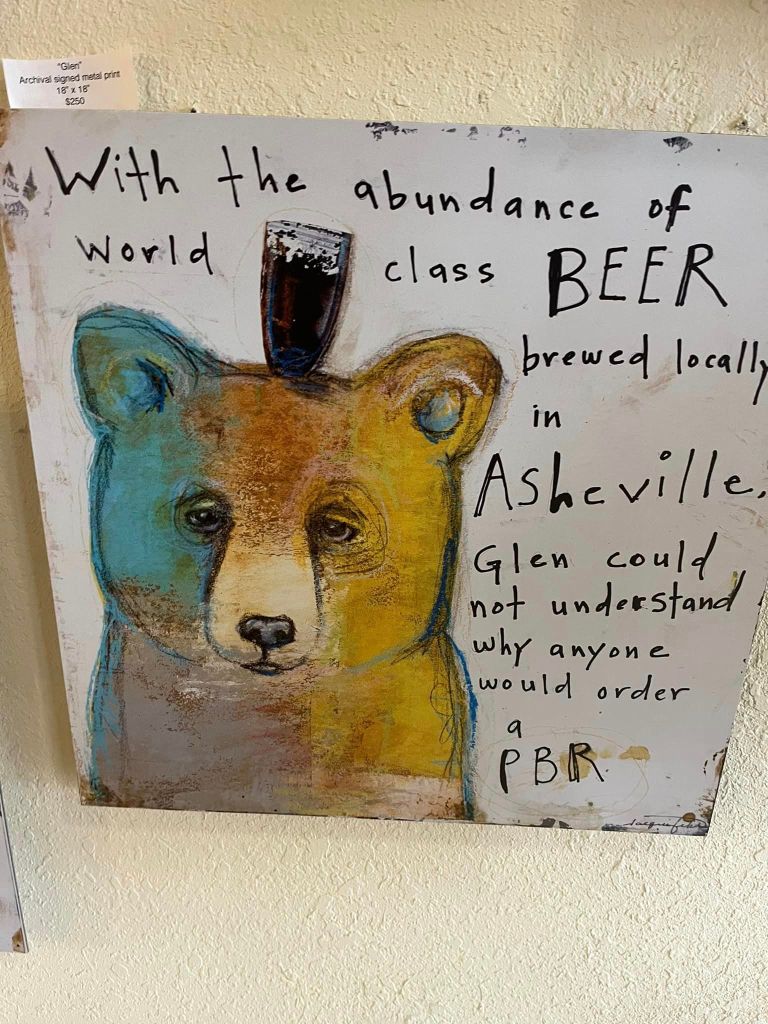 "Glen"
Archival signed metal print
18" x 18"
$250
With the abundance of
World class BEER
brewed locally
in
Asheville,
Glen could
not understand
why anyone
would order
a
PBR.